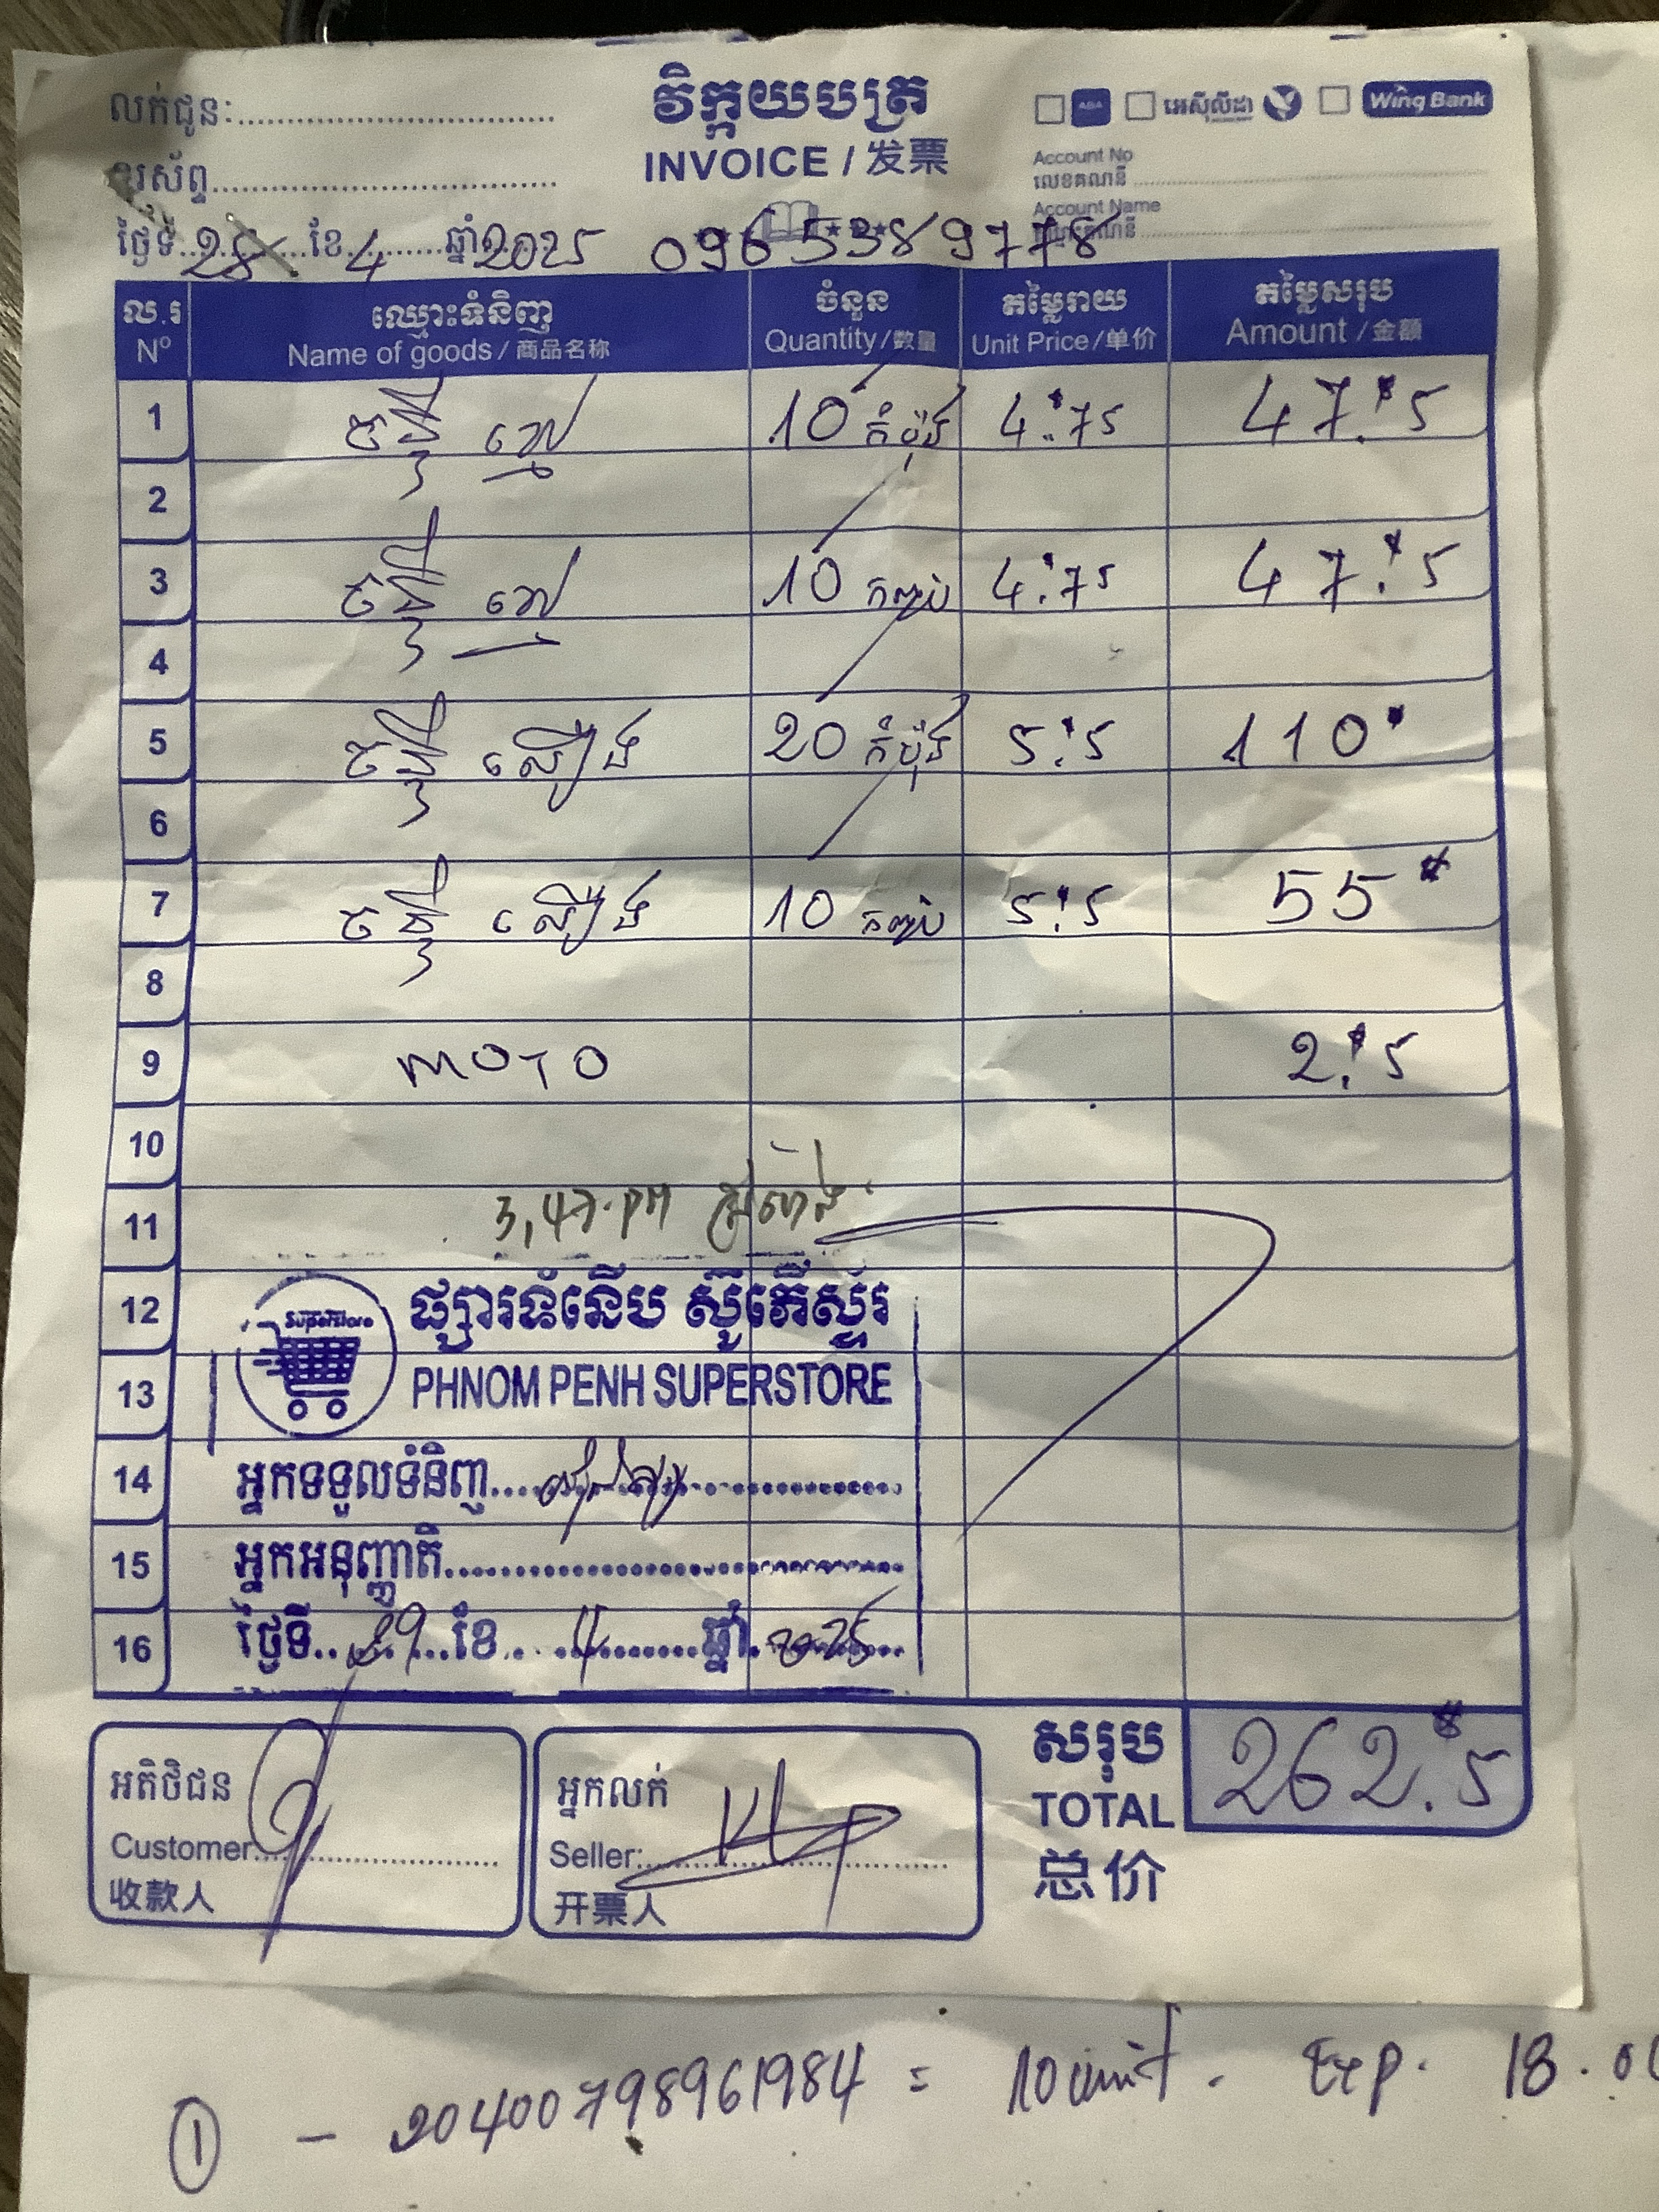 លក់ជូន:
វិក្កយបត្រ
អេស៊ីលីដា Wing Bank
INVOICE / 发票
Account No
លេខគណនី
Account Name
ថ្ងៃទី 28 ខែ 4 ឆ្នាំ 2025 096 5389778
ល.រ ឈ្មោះទំនិញ ចំនួន តម្លៃរាយ តម្លៃសរុប
Nº Name of goods / 商品名称 Quantity / 数量 Unit Price / 单价 Amount / 金额
1 10 កំប៉ុង 4.$75 47.$5
2
3 10 កញ្ចប់ 4.$75 47.$5
4
5 លឿង 20 កំប៉ុង 5.$5 110$
6
7 លឿង 10 កញ្ចប់ 5.$5 55$
8
9 MOTO 2.$5
10
11 3,47.PM
12 ផ្សារទំនើប ស៊ូភើស្ទ័រ
SuperStore
13 PHNOM PENH SUPERSTORE
14 អ្នកទទួលទំនិញ
15 អ្នកអនុញ្ញាតិ
16 ថ្ងៃទី 29 ខែ 4 ឆ្នាំ 2025
សរុប 262.$5
TOTAL
总价
អតិថិជន
Customer:
收款人
អ្នកលក់
Seller:
开票人
① - 20400798961984 = 10 unit. Exp. 18.0